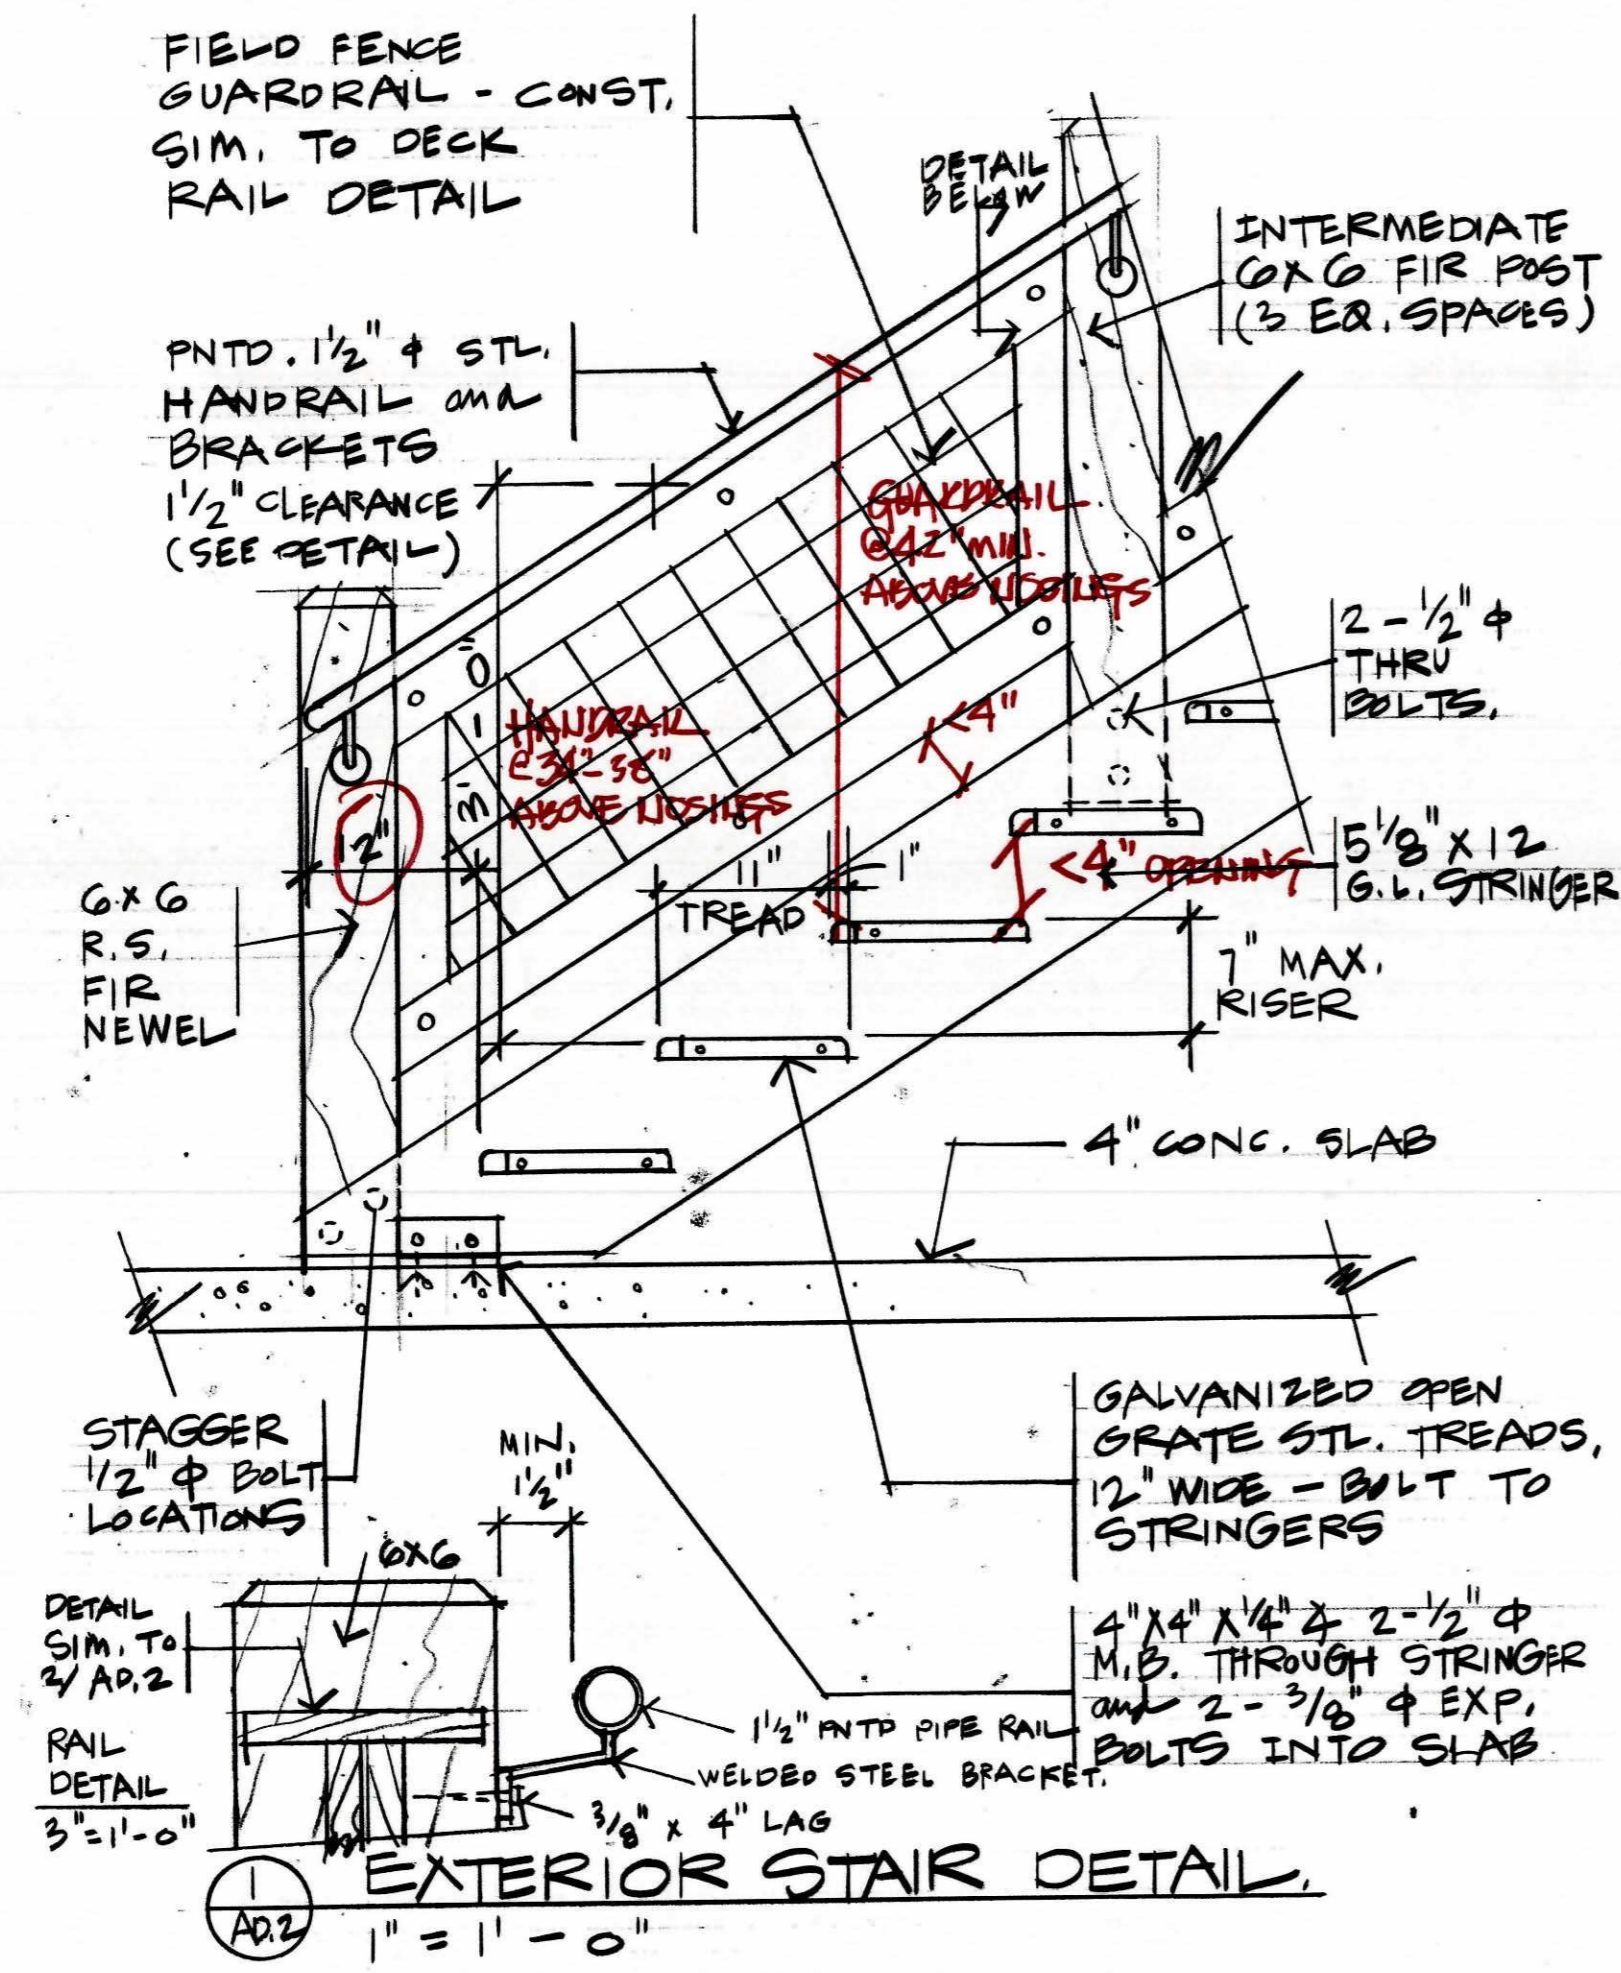 FIELD FENCE
GUARDRAIL - CONST.
SIM. TO DECK
RAIL DETAIL
DETAIL
BELOW
INTERMEDIATE
6X6 FIR POST
(3 EQ. SPACES)
PNTD. 1 1/2" ϕ STL.
HANDRAIL and
BRACKETS
1 1/2" CLEARANCE
(SEE DETAIL)
GUARDRAIL
@42" MIN.
ABOVE NOSINGS
2 - 1/2" ϕ
THRU
BOLTS.
3'-0"
HANDRAIL
@34"-38"
ABOVE NOSINGS
<4"
12"
11"
TREAD
1"
<4" OPENING
5 1/8" X 12
G.L. STRINGER
6X6
R.S.
FIR
NEWEL
7" MAX.
RISER
4" CONC. SLAB
STAGGER
1/2" ϕ BOLT
LOCATIONS
MIN.
1 1/2"
GALVANIZED OPEN
GRATE STL. TREADS,
12" WIDE - BOLT TO
STRINGERS
6X6
DETAIL
SIM. TO
2/AD.2
4"X4"X1/4" ∠ 2-1/2" ϕ
M.B. THROUGH STRINGER
and 2 - 3/8" ϕ EXP.
BOLTS INTO SLAB
1 1/2" PNTD PIPE RAIL
WELDED STEEL BRACKET.
3/8" x 4" LAG
RAIL
DETAIL
3"=1'-0"
1
AD.2
EXTERIOR STAIR DETAIL.
1" = 1' - 0"